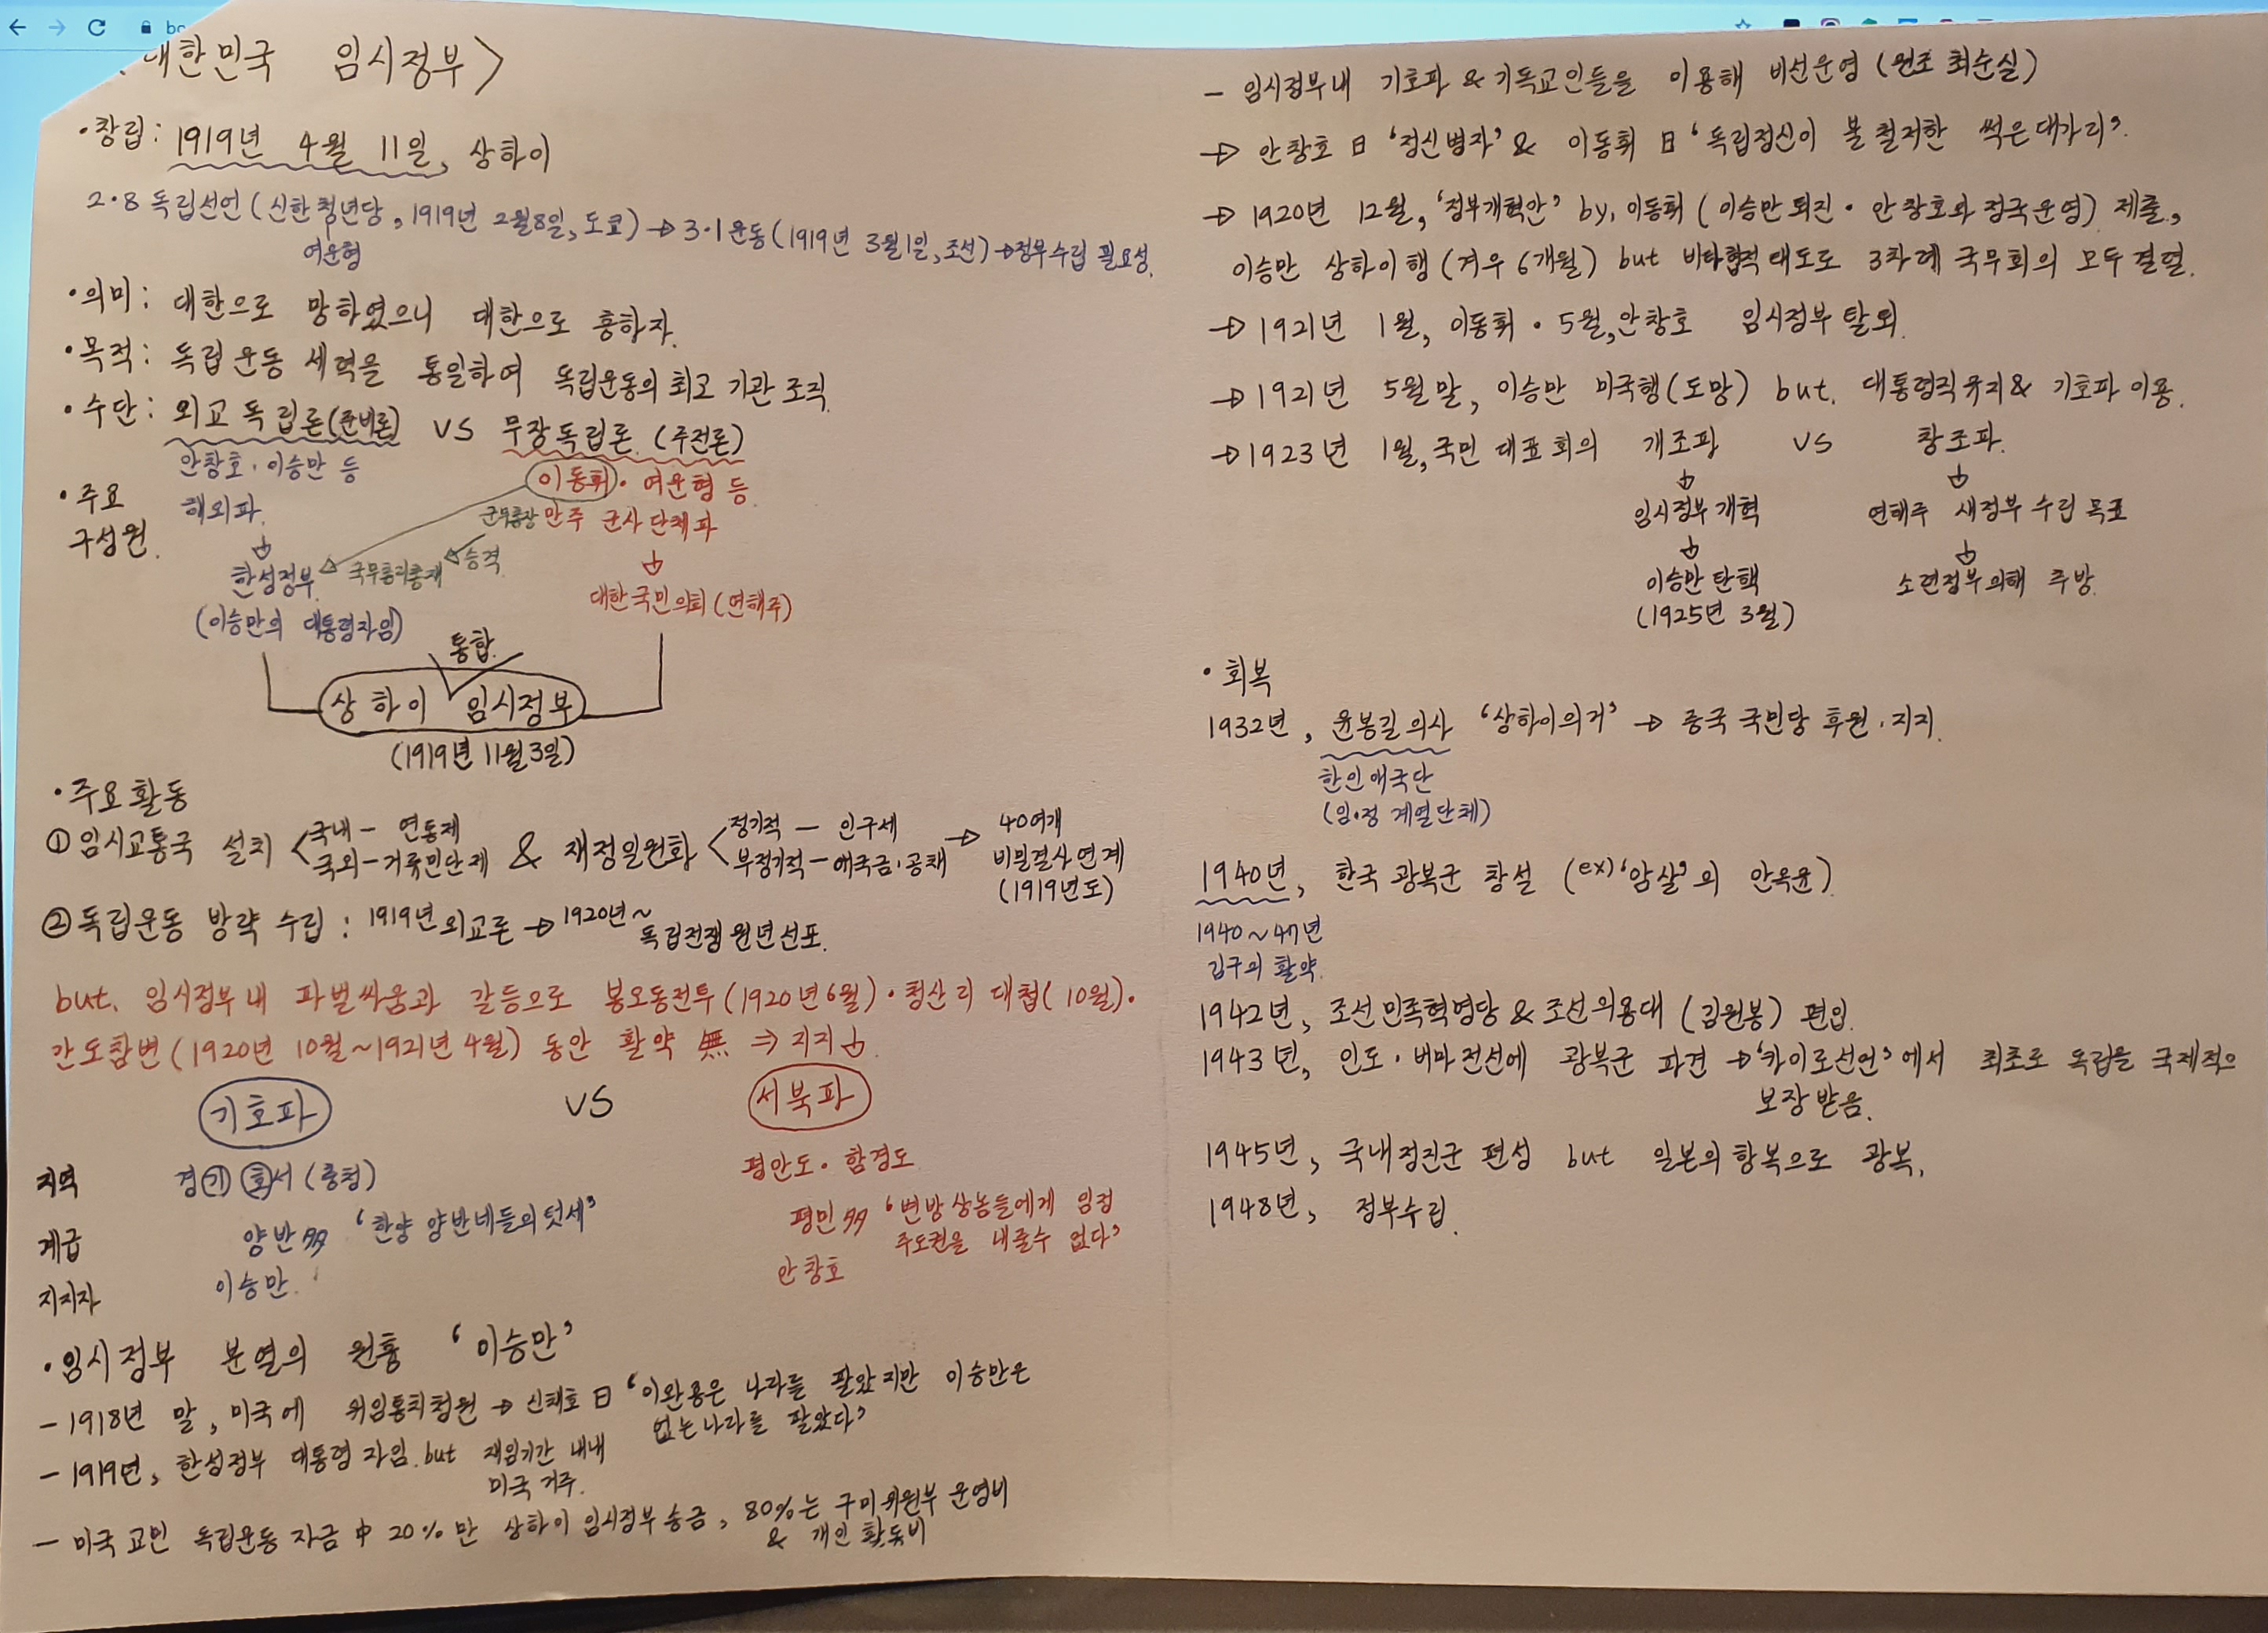 대한민국 임시정부>
·창립: 1919년 4월 11일, 상하이
2·8 독립선언(신한청년당, 1919년 2월8일, 도쿄) → 3·1운동(1919년 3월1일, 조선) → 정부수립 필요성.
여운형
·의미: 대한으로 망하였으니 대한으로 흥하자.
·목적: 독립운동 세력을 통일하여 독립운동의 최고 기관 조직
·수단: 외교독립론(준비론) VS 무장독립론 (주전론)
안창호·이승만 등
이동휘·여운형 등
·주요
구성원.
해외파.
군무총장 만주 군사단체파
↓
한성정부
국무총리총재 승격
↓
(이승만의 대통령자임)
대한국민의회(연해주)
통합.
상하이 임시정부
(1919년 11월3일)
·주요활동
① 임시교통국 설치 < 국내 - 연통제
국외 - 거류민단제
& 재정일원화 < 정기적 - 인구세
부정기적 - 애국금·공채
→ 40여개
비밀결사연계
(1919년도)
② 독립운동 방략 수립 : 1919년 외교론 → 1920년~
독립전쟁 원년선포.
but. 임시정부 내 파벌싸움과 갈등으로 봉오동전투(1920년6월)·청산리 대첩(10월)·
간도참변(1920년 10월~1921년 4월) 동안 활약 無 ⇒ 지지↓.
기호파 VS 서북파
지역 경기 호서(충청)
평안도·함경도
계급 양반多 '한양 양반네들의 텃세'
평민多 '변방 상놈들에게 임정
주도권을 내줄수 없다'
지지자 이승만.
안창호
·임시정부 분열의 원흉 '이승만'
- 1918년 말, 미국에 위임통치청원 → 신채호 曰 '이완용은 나라를 팔았지만 이승만은
없는나라를 팔았다'
- 1919년, 한성정부 대통령 자임. but 재임기간 내내
미국 거주.
- 미국교민 독립운동 자금 中 20%만 상하이 임시정부 송금, 80%는 구미위원부 운영비
& 개인 활동비
- 임시정부내 기호파 & 기독교인들을 이용해 비선운영 (원조 최순실)
→ 안창호 曰 '정신병자' & 이동휘 曰 '독립정신이 불철저한 썩은대가리'.
→ 1920년 12월, '정부개혁안' by. 이동휘 (이승만퇴진·안창호와 정국운영) 제출.,
이승만 상하이행 (겨우 6개월) but 비타협적 태도로 3차례 국무회의 모두 결렬.
→ 1921년 1월, 이동휘·5월, 안창호 임시정부 탈퇴.
→ 1921년 5월말, 이승만 미국행(도망) but. 대통령직유지 & 기호파 이용.
→ 1923년 1월, 국민 대표회의 개조파 VS 창조파.
↓ ↓
임시정부개혁 연해주 새정부 수립 목표
↓ ↓
이승만 탄핵 소련정부의해 추방.
(1925년 3월)
·회복
1932년, 윤봉길의사 '상하이의거' → 중국 국민당 후원·지지.
한인애국단
(임·정 계열단체)
1940년, 한국 광복군 창설 (ex) '암살'의 안옥윤)
1940~47년
김구의 활약.
1942년, 조선민족혁명당 & 조선의용대 (김원봉) 편입.
1943년, 인도·버마전선에 광복군 파견 → '카이로선언'에서 최초로 독립을 국제적으
보장받음.
1945년, 국내정진군 편성 but 일본의 항복으로 광복.
1948년, 정부수립.